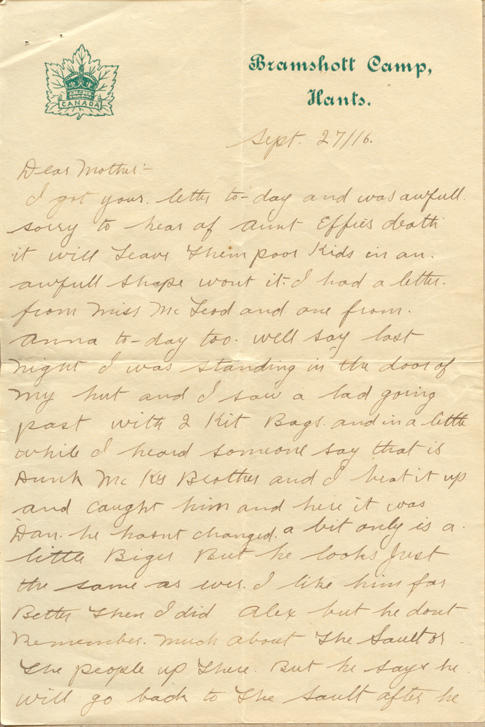 CANADA
Bramshott Camp,
Hants.
Sept. 27/16.
Dear Mother:-
I got your letter to-day and was awfull
sorry to hear of aunt Effies death
it will leave them poor Kids in an
awfull shape wont it. I had a letter
from Miss McLeod and one from
Anna to-day too. well say last
night I was standing in the door of
my hut and I saw a lad going
past with 2 Kit Bags. and in a little
while I heard someone say that is
Dunk McKys Brother and I beat it up
and caught him and here it was
Dan. he hasnt changed a bit only is a
little Biger But he looks Just
the same as ever. I like him far
Better then I did Alex but he dont
Remember much about The Sault or
The people up There. But he says he
will go back to The Sault after he